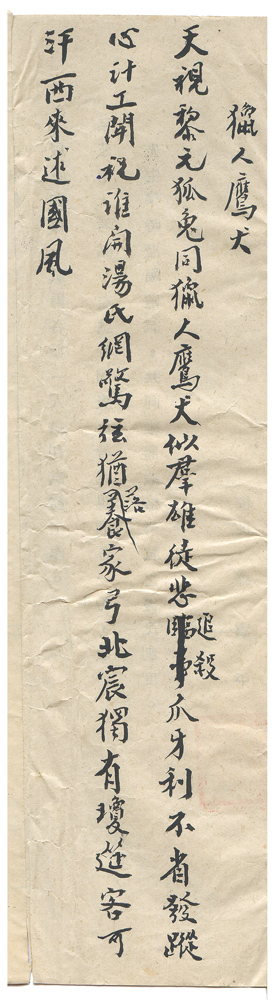 獵人鷹犬
天視黎元狐兔同獵人鷹犬似羣雄徒悲追殺爪牙利不省發蹤
心計工開祝誰開湯氏網驚弦猶落養家弓北宸獨有瓊筵客可
汗西來述國風